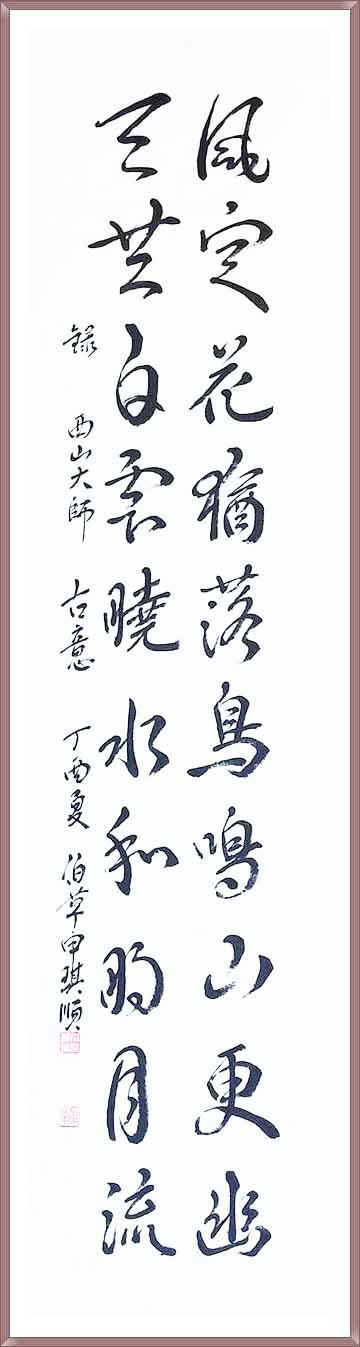 風定花猶落鳥鳴山更幽
天共白雲曉水和明月流
錄 西山大師 古意 丁酉夏 伯草申琪順